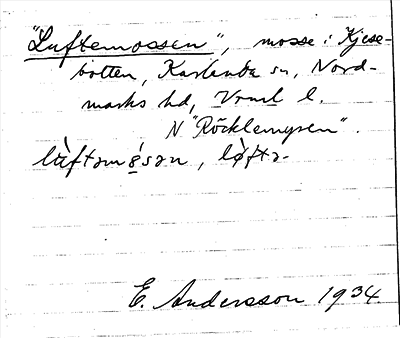 "Luftemossen", mosse i Kjese-
botten, Karlanda sn, Nord-
marks hd, Vrml l.
N "Röcklemyren".
lùftəmósən, lòftə-
E. Andersson 1934.